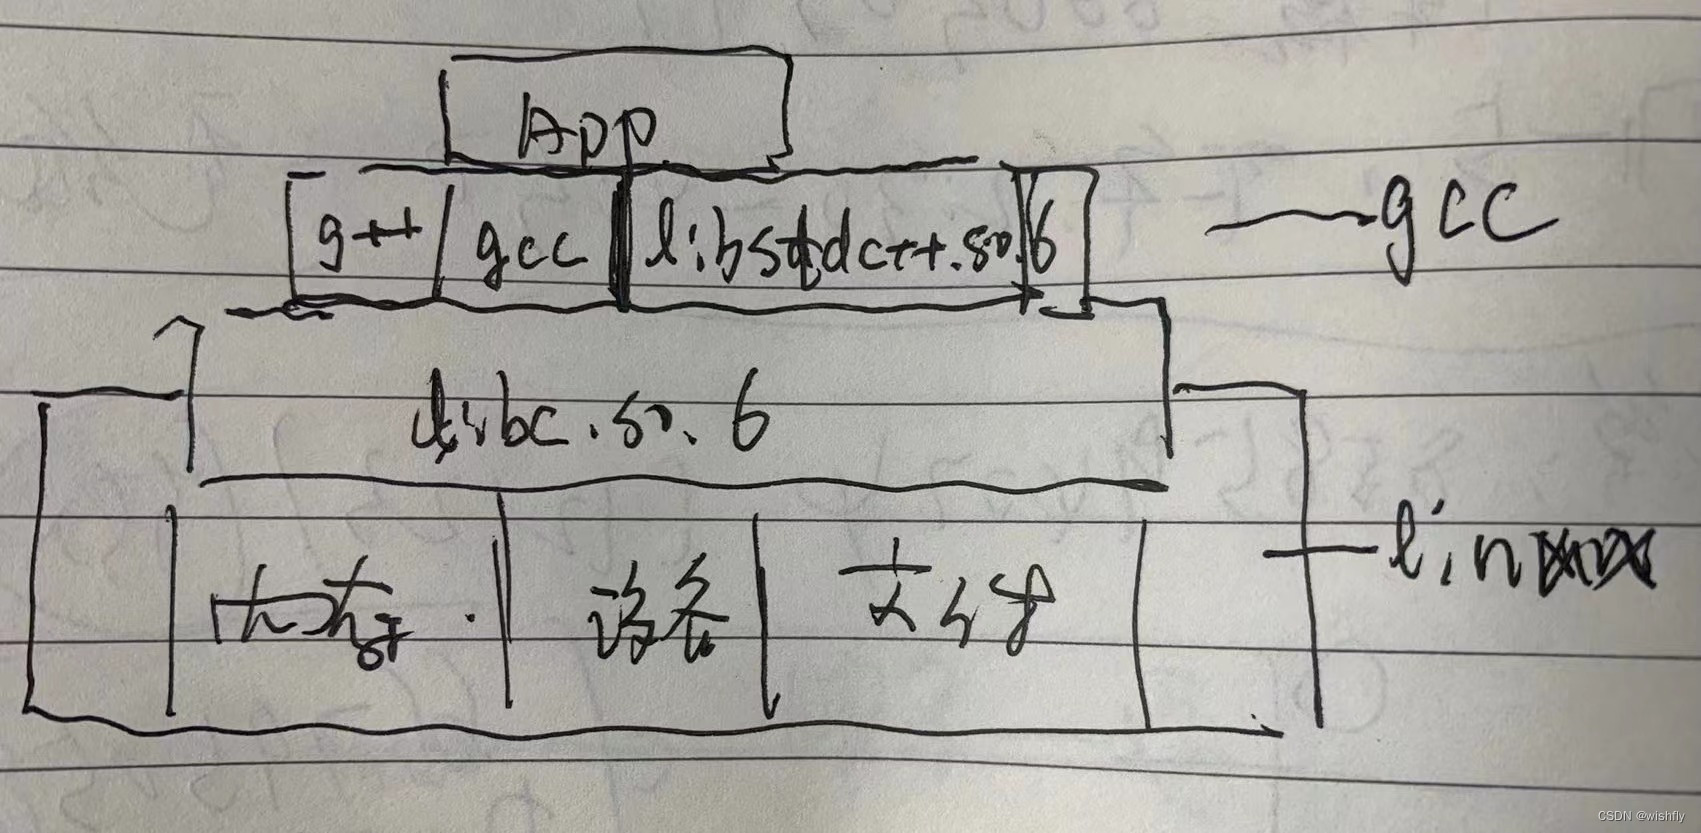 App
g++ gcc libstdc++.so.6 gcc
libc.so.6
内存 设备 文件 linux
CSDN @wishfly